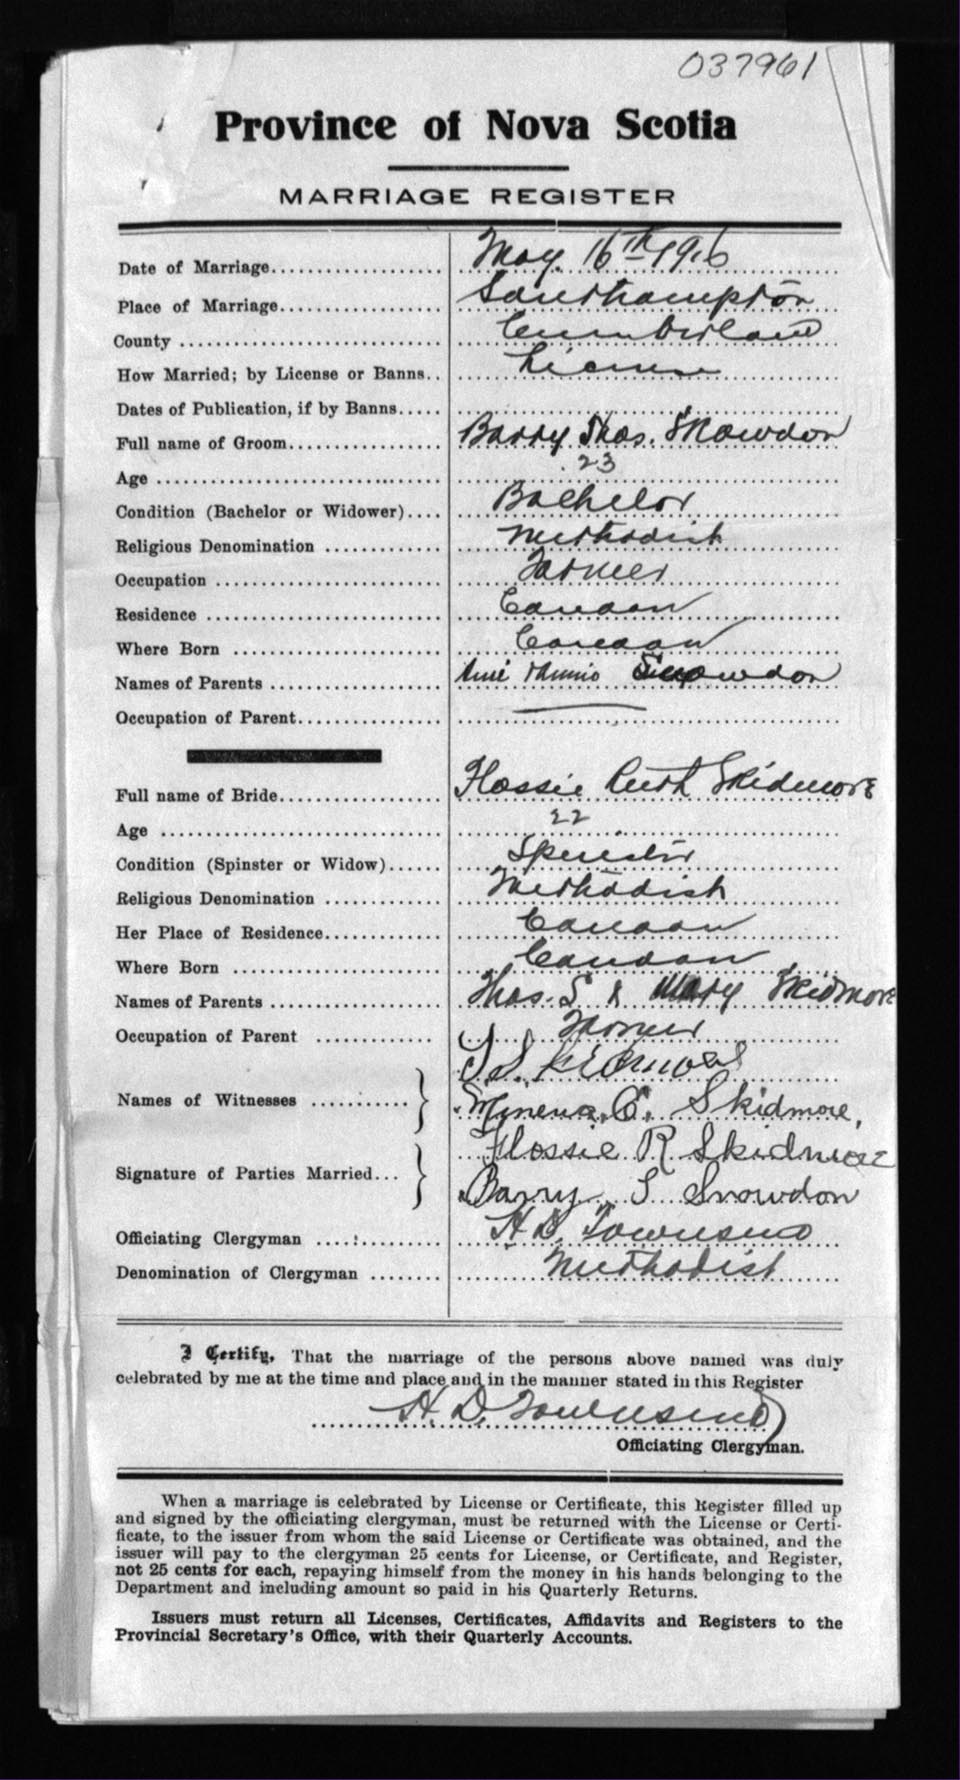 037961
Province of Nova Scotia
MARRIAGE REGISTER
Date of Marriage.................... May 16th 1916
Place of Marriage................... Southampton
County .............................. Cumberland
How Married; by License or Banns.. License
Dates of Publication, if by Banns.....
Full name of Groom.................. Barry Thos. Snowdon
Age ................................. 23
Condition (Bachelor or Widower).... Bachelor
Religious Denomination .............. Methodist
Occupation .......................... Farmer
Residence ........................... Canaan
Where Born .......................... Canaan
Names of Parents .................... Snowdon
Occupation of Parent.................
Full name of Bride................... Flossie Ruth Skidmore
Age ................................. 22
Condition (Spinster or Widow)...... Spinster
Religious Denomination .............. Methodist
Her Place of Residence.............. Canaan
Where Born .......................... Canaan
Names of Parents .................... Thos. S & Mary Skidmore
Occupation of Parent ............... Farmer
T. S. Skidmore
Names of Witnesses ............
Minerva C. Skidmore,
Flossie R Skidmore
Signature of Parties Married...
Barry T Snowdon
Officiating Clergyman .............. H. D. Townsend
Denomination of Clergyman ........ Methodist
I Certify, That the marriage of the persons above named was duly
celebrated by me at the time and place and in the manner stated in this Register
H. D. Townsend
Officiating Clergyman.
When a marriage is celebrated by License or Certificate, this Register filled up
and signed by the officiating clergyman, must be returned with the License or Certi-
ficate, to the issuer from whom the said License or Certificate was obtained, and the
issuer will pay to the clergyman 25 cents for License, or Certificate, and Register,
not 25 cents for each, repaying himself from the money in his hands belonging to the
Department and including amount so paid in his Quarterly Returns.
Issuers must return all Licenses, Certificates, Affidavits and Registers to the
Provincial Secretary's Office, with their Quarterly Accounts.